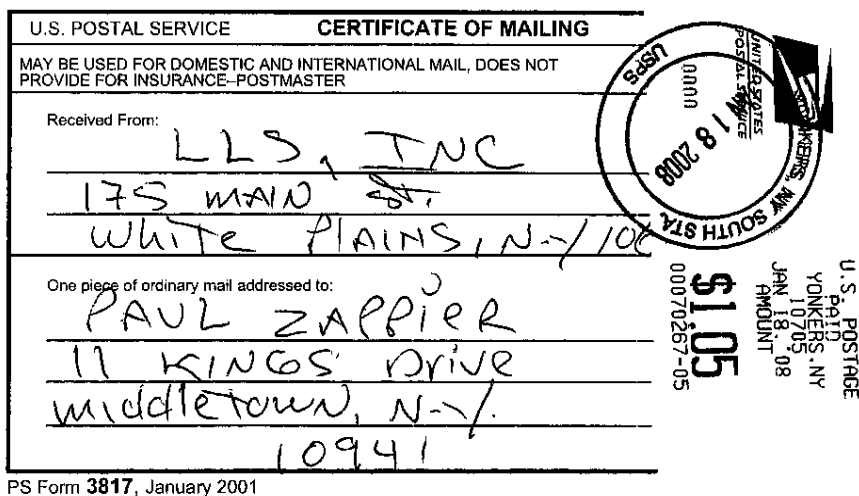 U.S. POSTAL SERVICE CERTIFICATE OF MAILING
MAY BE USED FOR DOMESTIC AND INTERNATIONAL MAIL, DOES NOT
PROVIDE FOR INSURANCE–POSTMASTER
Received From:
LLS, INC
175 MAIN St.
White PLAINS, N-Y 10
One piece of ordinary mail addressed to:
PAUL ZAPPIER
11 KINGS Drive
Middletown, N-Y.
10941
PS Form 3817, January 2001
USPS
0000
18 2008
YONKERS, NY SOUTH STA.
UNITED STATES
POSTAL SERVICE
U.S. POSTAGE
PAID
YONKERS.NY
10705
JAN 18, '08
AMOUNT
$1.05
00070267-05